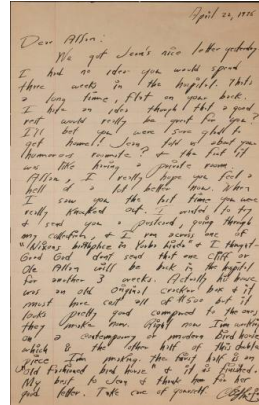 April 22, 1975
Dear Allen:
We got Jean's nice letter yesterday
I had no idea you would spend
three weeks in the hospital. That's
a long time, flat on your back.
I have an idea though that a good
rest would really be great for you?
I'll bet you were sure glad to
get home! Jean told us about your
humorous roomate? for the first it
was like having a private room.
Allen, I really hope you feel a
hell of a lot better now. When
I saw you the last time you were
really knocked out. I wanted to try
& send you a postcard, going through
my collection, & I ran across one of
"Nixons birthplace in Yorba Linda" & I thought-
Good God dont send that one Cliff or
Ole Allen will be back in the hospital
for another 3 weeks. Actually the house
was an old original cracker box & it
must have cost all of $500 but it
looks pretty good compared to the ones
they make now. Right now I'm working
on a contemporary or modern bird house
which is the other half of this
piece I'm making. The first half is an
old fashioned bird house & it is finished.
My best to Jean & thank her for her
good letter. Take care of yourself.
Cliff